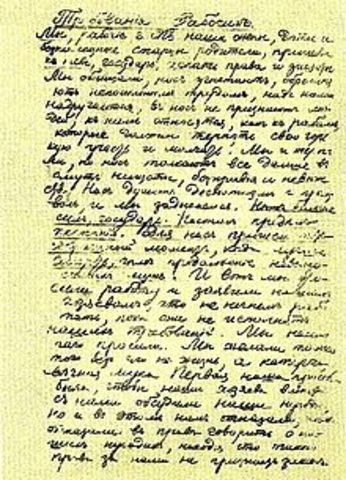 Требованія Рабочихъ.
Мы, рабочіе г. СПБ наши жены, дѣти и
старцы родители, пришли
къ тебѣ, государь, искать правды и защиты
Мы обнищали, насъ угнетаютъ, обременя
ютъ непосильнымъ трудомъ, надъ нами
надругаются, въ насъ не признаютъ лю
дей, къ намъ относятся, какъ къ рабамъ,
которые должны терпѣть свою горь
кую участь и молчать! Мы и терпѣ
ли, но насъ толкаютъ все дальше въ
омутъ нищеты, безправія и невѣже
ства. Насъ душитъ деспотизмъ и произ
волъ и мы задыхаемся. Нѣтъ больше
силъ, государь. Насталъ предѣлъ
терпѣнію. Для насъ пришелъ
моментъ, когда лучше
смерть, чѣмъ продолженіе невыно
мукъ! И вотъ мы бро
сили работу и заявили нашимъ
хозяевамъ что не начнемъ рабо
тать пока они не исполнятъ
нашихъ требованій. Мы немно
гаго просили. Мы желали только
того безъ чего не жизнь, а каторга
вѣчная мука. Первая наша просьба
была, чтобы наши хозяева вмѣстѣ
съ нами обсудили наши нужды
Но и въ этомъ намъ отказали, намъ
отказали въ правѣ говорить о на
шихъ нуждахъ, находя, что такого
права за нами не признаетъ законъ.